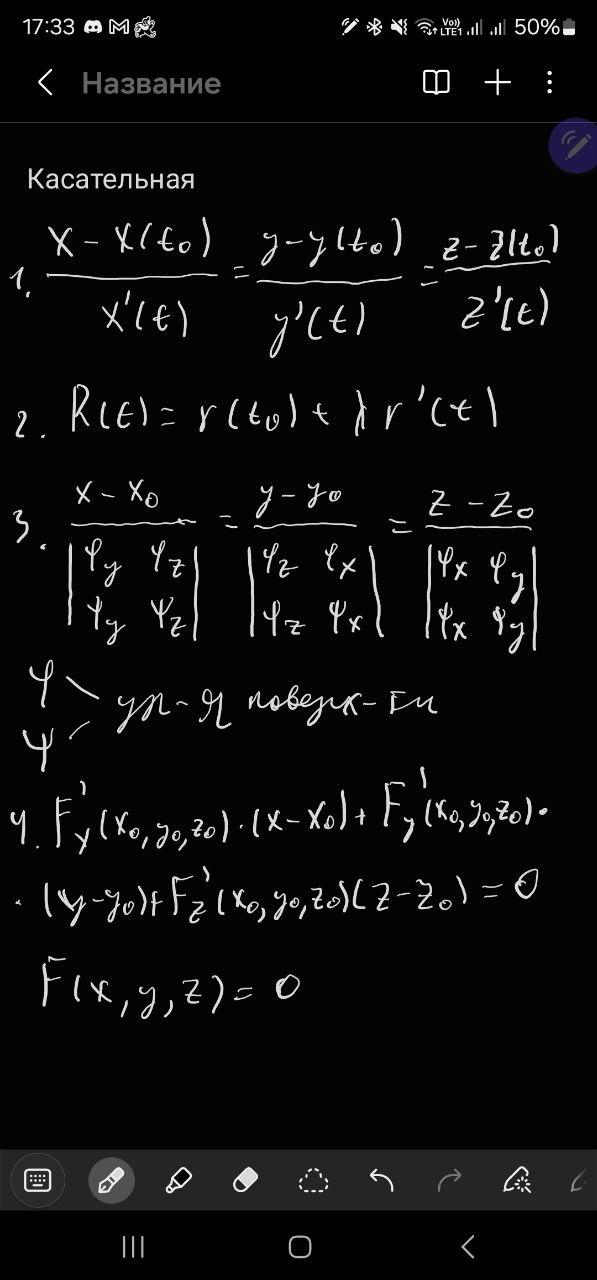 17:33 Vo)) LTE1 50%
Название
Касательная
1. (x - x(t₀))/(x'(t)) = (y - y(t₀))/(y'(t)) = (z - z(t₀))/(z'(t))
2. R(t) = r(t₀) + λ r'(t)
3. (x - x₀)/|φy φz; ψy ψz| = (y - y₀)/|φz φx; ψz ψx| = (z - z₀)/|φx φy; ψx ψy|
φ
ψ ур-я поверх-ти
4. F'x(x₀, y₀, z₀) · (x - x₀) + F'y(x₀, y₀, z₀) ·
· (y - y₀) + F'z(x₀, y₀, z₀)(z - z₀) = 0
F(x, y, z) = 0